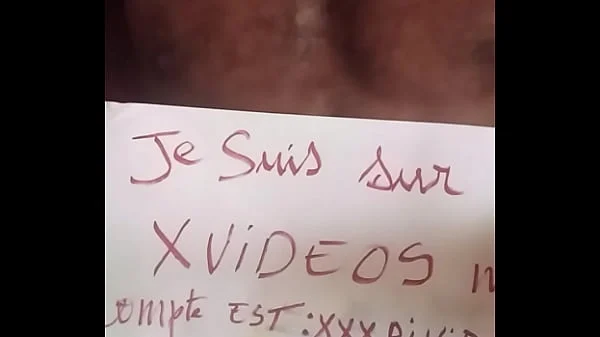 Je Suis sur
XViDEOS
compte EST: